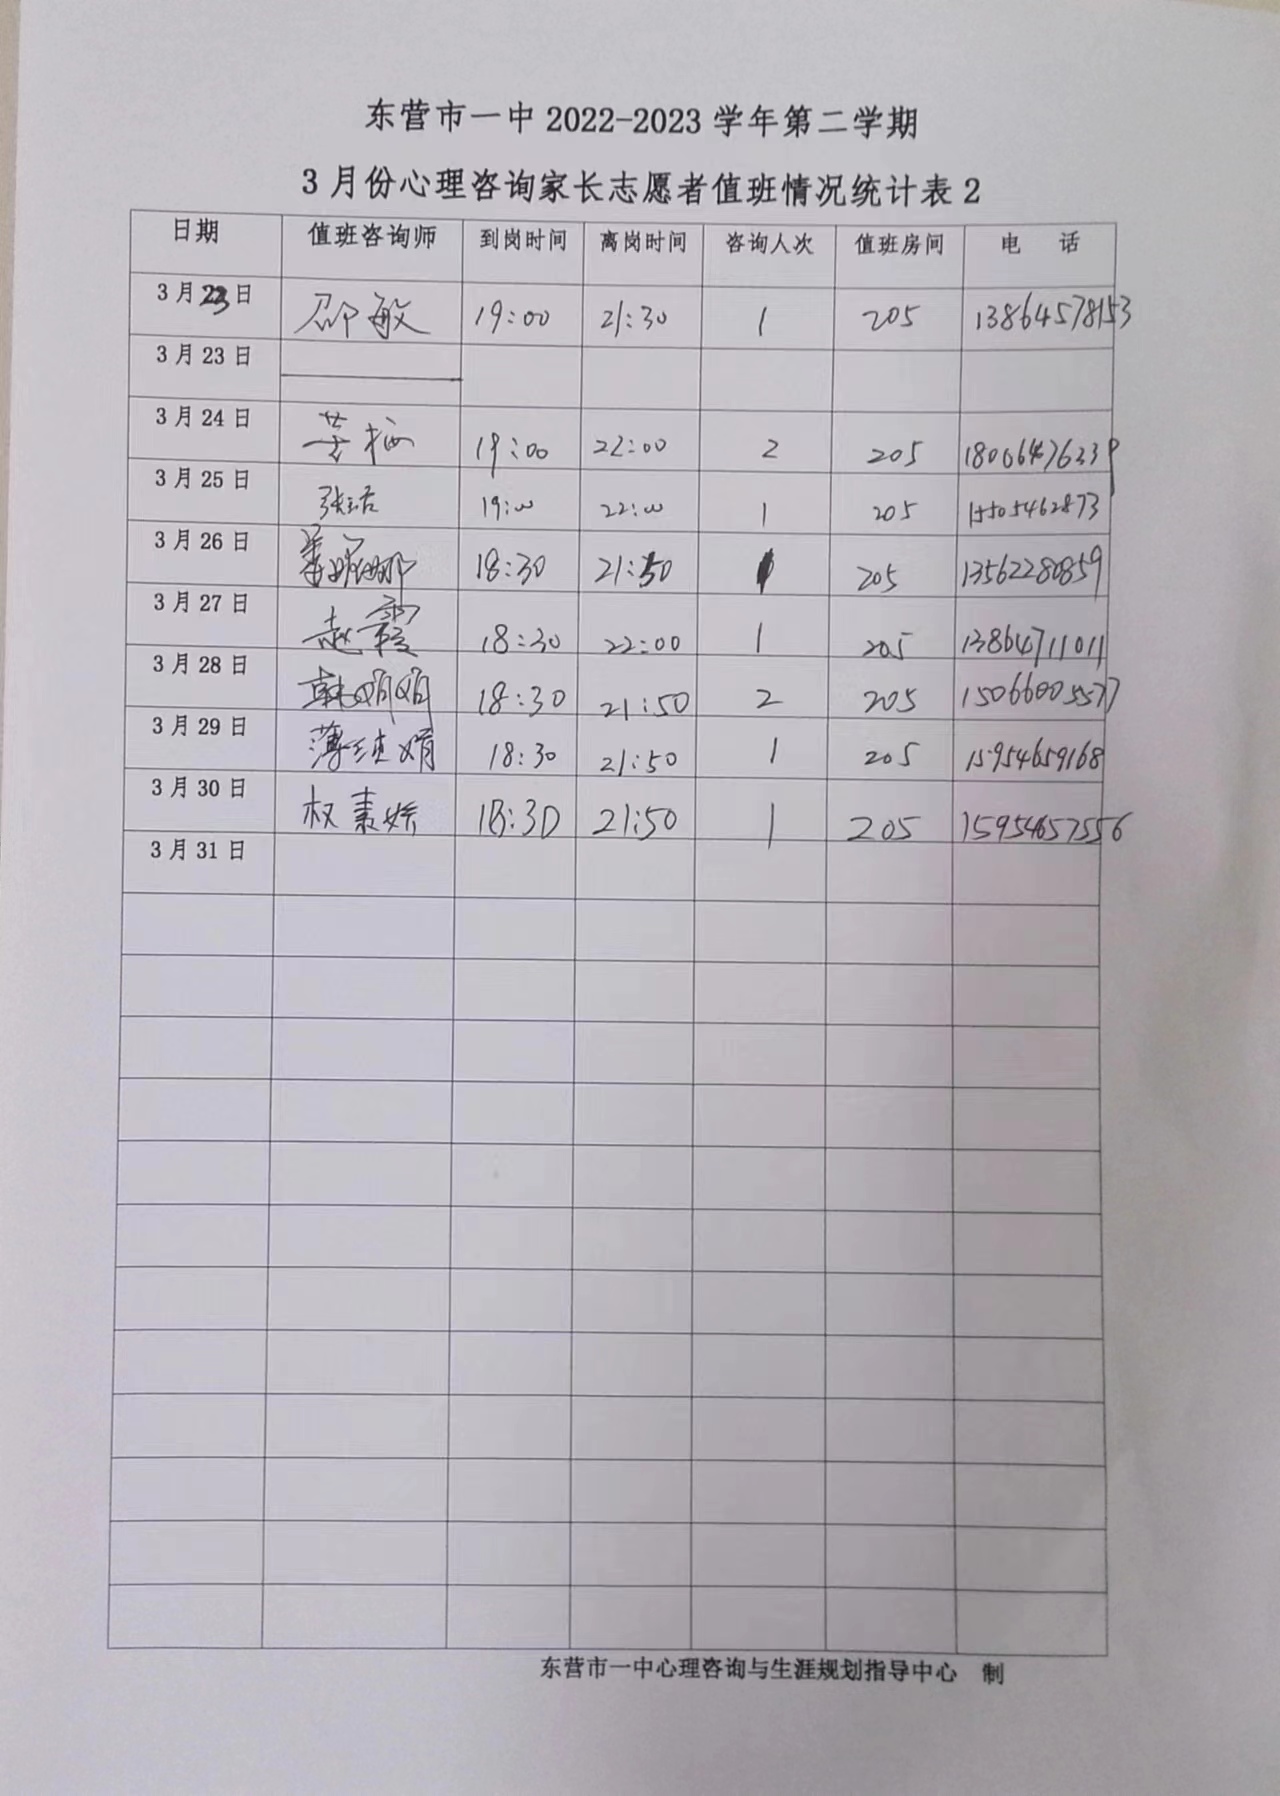 东营市一中 2022-2023 学年第二学期
3 月份心理咨询家长志愿者值班情况统计表 2
日期 值班咨询师 到岗时间 离岗时间 咨询人次 值班房间 电 话
3 月 23 日 邵敏 19:00 21:30 1 205 13864578153
3 月 23 日
3 月 24 日 19:00 22:00 2 205 18006476339
3 月 25 日 张洁 19:00 22:00 1 205 15505462873
3 月 26 日 21:50 18:30 205 13562280859
3 月 27 日 赵霞 18:30 22:00 1 205 13864711011
3 月 28 日 韩娟娟 18:30 21:50 2 205 15066005577
3 月 29 日 18:30 21:50 1 205 15954659168
3 月 30 日 权素娇 18:30 21:50 1 205 15954657556
3 月 31 日
东营市一中心理咨询与生涯规划指导中心 制